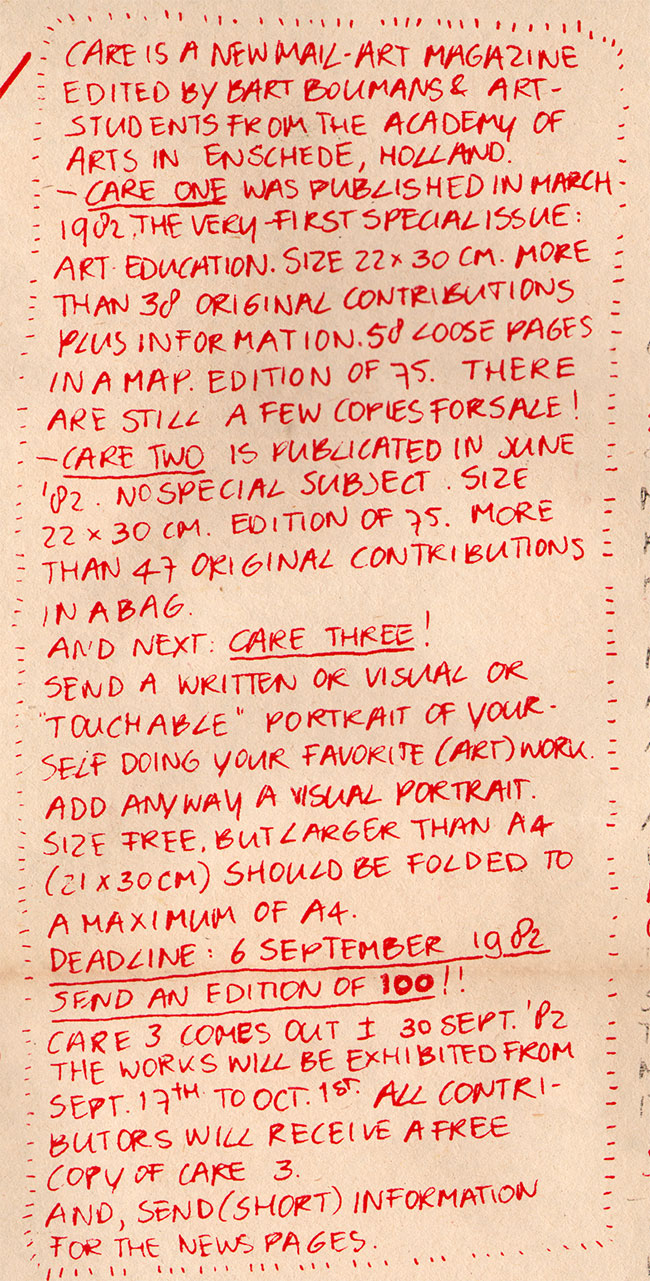 CARE IS A NEW MAIL-ART MAGAZINE
EDITED BY BART BOUMANS & ART-
STUDENTS FROM THE ACADEMY OF
ARTS IN ENSCHEDE, HOLLAND.
- CARE ONE WAS PUBLISHED IN MARCH
1982. THE VERY-FIRST SPECIAL ISSUE:
ART EDUCATION. SIZE 22 x 30 CM. MORE
THAN 38 ORIGINAL CONTRIBUTIONS
PLUS INFORMATION. 58 LOOSE PAGES
IN A MAP. EDITION OF 75. THERE
ARE STILL A FEW COPIES FOR SALE!
- CARE TWO IS PUBLICATED IN JUNE
'82. NO SPECIAL SUBJECT. SIZE
22 x 30 CM. EDITION OF 75. MORE
THAN 47 ORIGINAL CONTRIBUTIONS
IN A BAG.
AND NEXT: CARE THREE!
SEND A WRITTEN OR VISUAL OR
"TOUCHABLE" PORTRAIT OF YOUR-
SELF DOING YOUR FAVORITE (ART) WORK.
ADD ANYWAY A VISUAL PORTRAIT.
SIZE FREE, BUT LARGER THAN A4
(21 x 30 CM) SHOULD BE FOLDED TO
A MAXIMUM OF A4.
DEADLINE: 6 SEPTEMBER 1982
SEND AN EDITION OF 100!!
CARE 3 COMES OUT ± 30 SEPT. '82
THE WORKS WILL BE EXHIBITED FROM
SEPT. 17TH. TO OCT. 1ST. ALL CONTRI-
BUTORS WILL RECEIVE A FREE
COPY OF CARE 3.
AND, SEND (SHORT) INFORMATION
FOR THE NEWS PAGES.